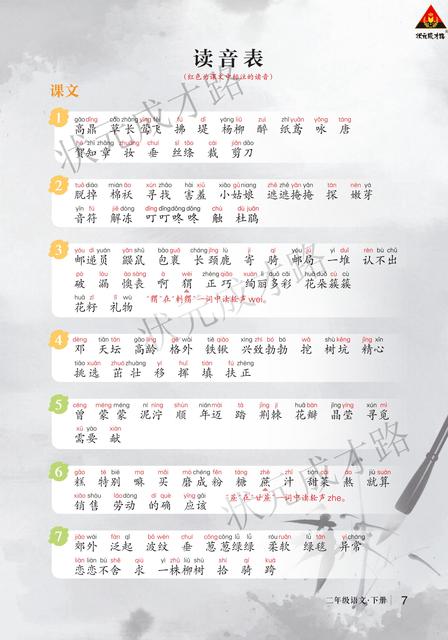 状元成才路
读音表
(红色为课文中标注的读音)
课文
1
gāo dǐng cǎo zhǎng yīng fēi fú dī yáng liǔ zuì zhǐ yuān yǒng táng
高鼎 草长莺飞 拂 堤 杨柳 醉 纸鸢 咏 唐
hè zhī zhāng zhuāng chuí sī tāo cái jiǎn dāo
贺知章 妆 垂 丝绦 裁 剪刀
2
tuō diào mián ǎo xún zhǎo hài xiū xiǎo gū niang zhē zhē yǎn yǎn tàn nèn yá
脱掉 棉袄 寻找 害羞 小姑娘 遮遮掩掩 探 嫩芽
yīn fú jiě dòng dīng dīng dōng dōng chù dù juān
音符 解冻 叮叮咚咚 触 杜鹃
3
yóu dì yuán yǎn shǔ bāo guǒ cháng jǐng lù jì qí yóu jú yì duī rèn bù chū
邮递员 鼹鼠 包裹 长颈鹿 寄 骑 邮局 一堆 认不出
pò lòu ào sàng a wèi zhèng qiǎo xuàn lì duō cǎi huā duǒ cù cù
破 漏 懊丧 啊 猬 正巧 绚丽多彩 花朵簇簇
"猬"在"刺猬"一词中读轻声wei。
huā zǐ lǐ wù
花籽 礼物
4
dèng tiān tán gāo líng gé wài tiě qiāo xìng zhì bó bó wā shù kēng jīng xīn
邓 天坛 高龄 格外 铁锹 兴致勃勃 挖 树坑 精心
tiāo xuǎn zhuó zhuàng yí huī tián fú zhèng
挑选 茁壮 移 挥 填 扶正
5
céng méng méng ní nìng shùn nián mài tà jīng jí huā bàn jīng yíng xún mì
曾 蒙蒙 泥泞 顺 年迈 踏 荆棘 花瓣 晶莹 寻觅
xū yào xiàn
需要 献
6
gāo tè bié ma mǎi mò chéng fěn táng zhè zhī tián cài áo jiù suàn
糕 特别 嘛 买 磨成粉 糖 蔗 汁 甜菜 熬 就算
"蔗"在"甘蔗"一词中读轻声zhe。
xiāo shòu láo dòng dí què yīng gāi
销售 劳动 的确 应该
7
jiāo wài fàn qǐ bō wén chuí cōng cōng lǜ lǜ róu ruǎn lǜ tǎn yì cháng
郊外 泛起 波纹 垂 葱葱绿绿 柔软 绿毯 异常
liàn liàn bù shě qiú yì zhū liǔ shù shí qí kuà
恋恋不舍 求 一株柳树 拾 骑 跨
二年级语文·下册 7
状元成才路
状元成才路
状元成才路